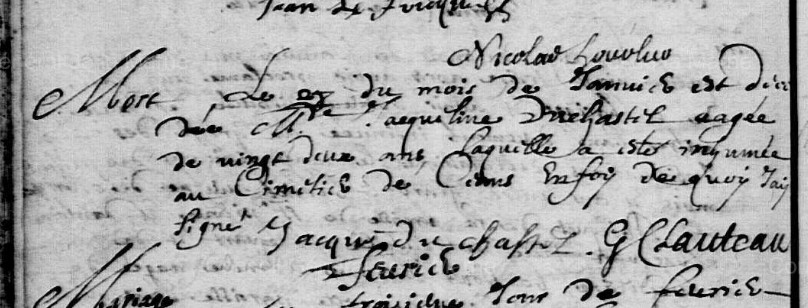 Nicolas
Mort Le 27 du mois de Januier est déce
dée M.re Jacqueline Duchastel aagée
de vingt deux ans Laquelle a esté inhumée
au Cimetiere de Ceans En foy de quoy J'ay
signé Jacque du chastel. G Clauteau
feurier
Mariage troisieme Jour de feurier